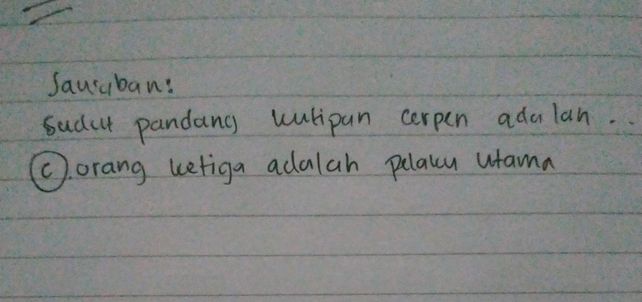 Jawaban:
Sudut pandang kutipan cerpen adalah ..
(C). orang ketiga adalah pelaku utama